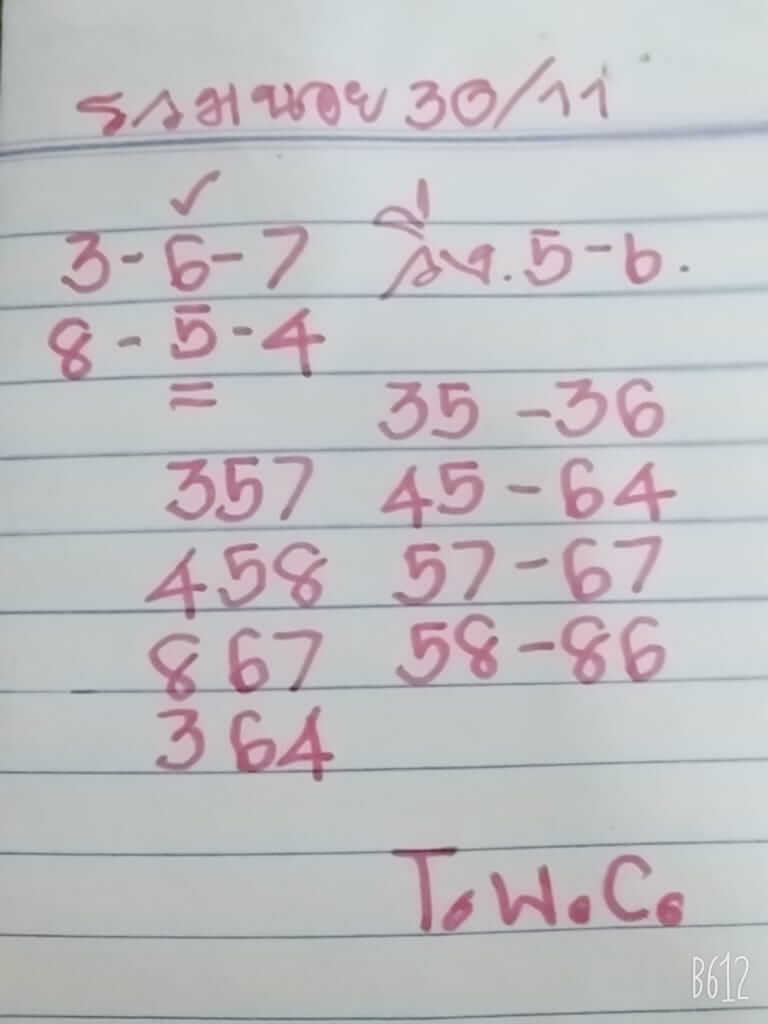 รวมหนอย 30/11
✓
3-6-7 วิ่ง.5-6.
8-5-4
=
35-36
357 45-64
458 57-67
867 58-86
364
T.W.C.
B612